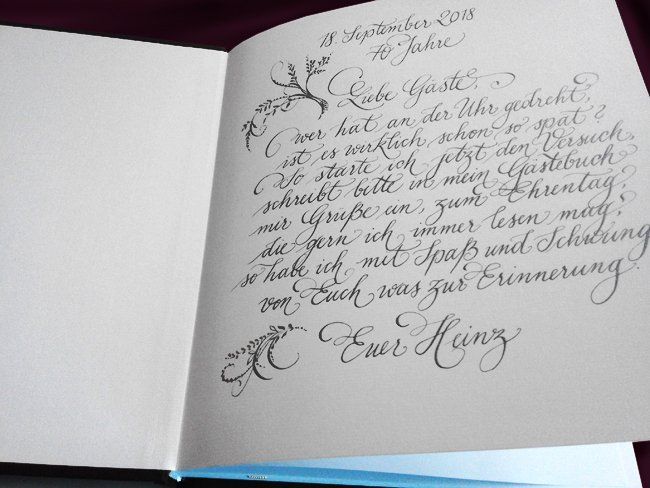 18. September 2018
70 Jahre
Liebe Gäste,
wer hat an der Uhr gedreht,
ist es wirklich schon so spät?
So starte ich jetzt den Versuch,
schreibt bitte in mein Gästebuch
mir Grüße ein, zum Ehrentag,
die gern ich immer lesen mag;
so habe ich mit Spaß und Schwung
von Euch was zur Erinnerung.
Euer Heinz